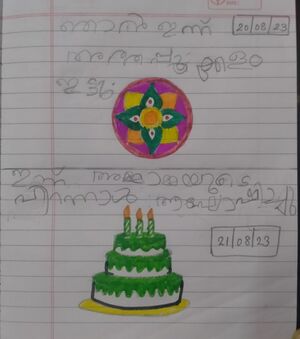 ഞാൻ ഇന്ന് 20/08/23
അത്തപ്പൂക്കളം
ഇട്ടു
ഇന്ന് അമ്മാമ്മയുടെ
പിറന്നാൾ ആഘോഷിച്ചു
21/08/23